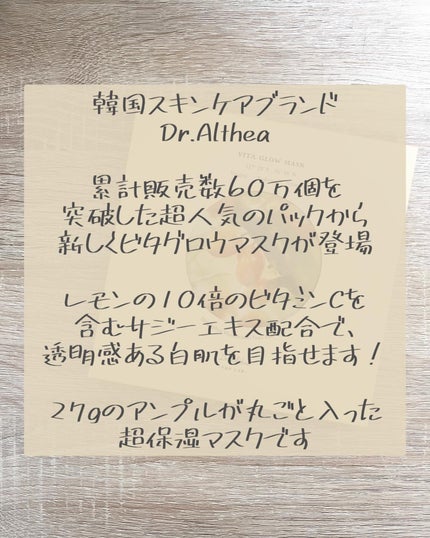 韓国スキンケアブランド
Dr.Althea
累計販売数60万個を
突破した超人気のパックから
新しくビタグロウマスクが登場
レモンの10倍のビタミンCを
含むサジーエキス配合で、
透明感ある白肌を目指せます！
27gのアンプルが丸ごと入った
超保湿マスクです
VITA GLOW MASK